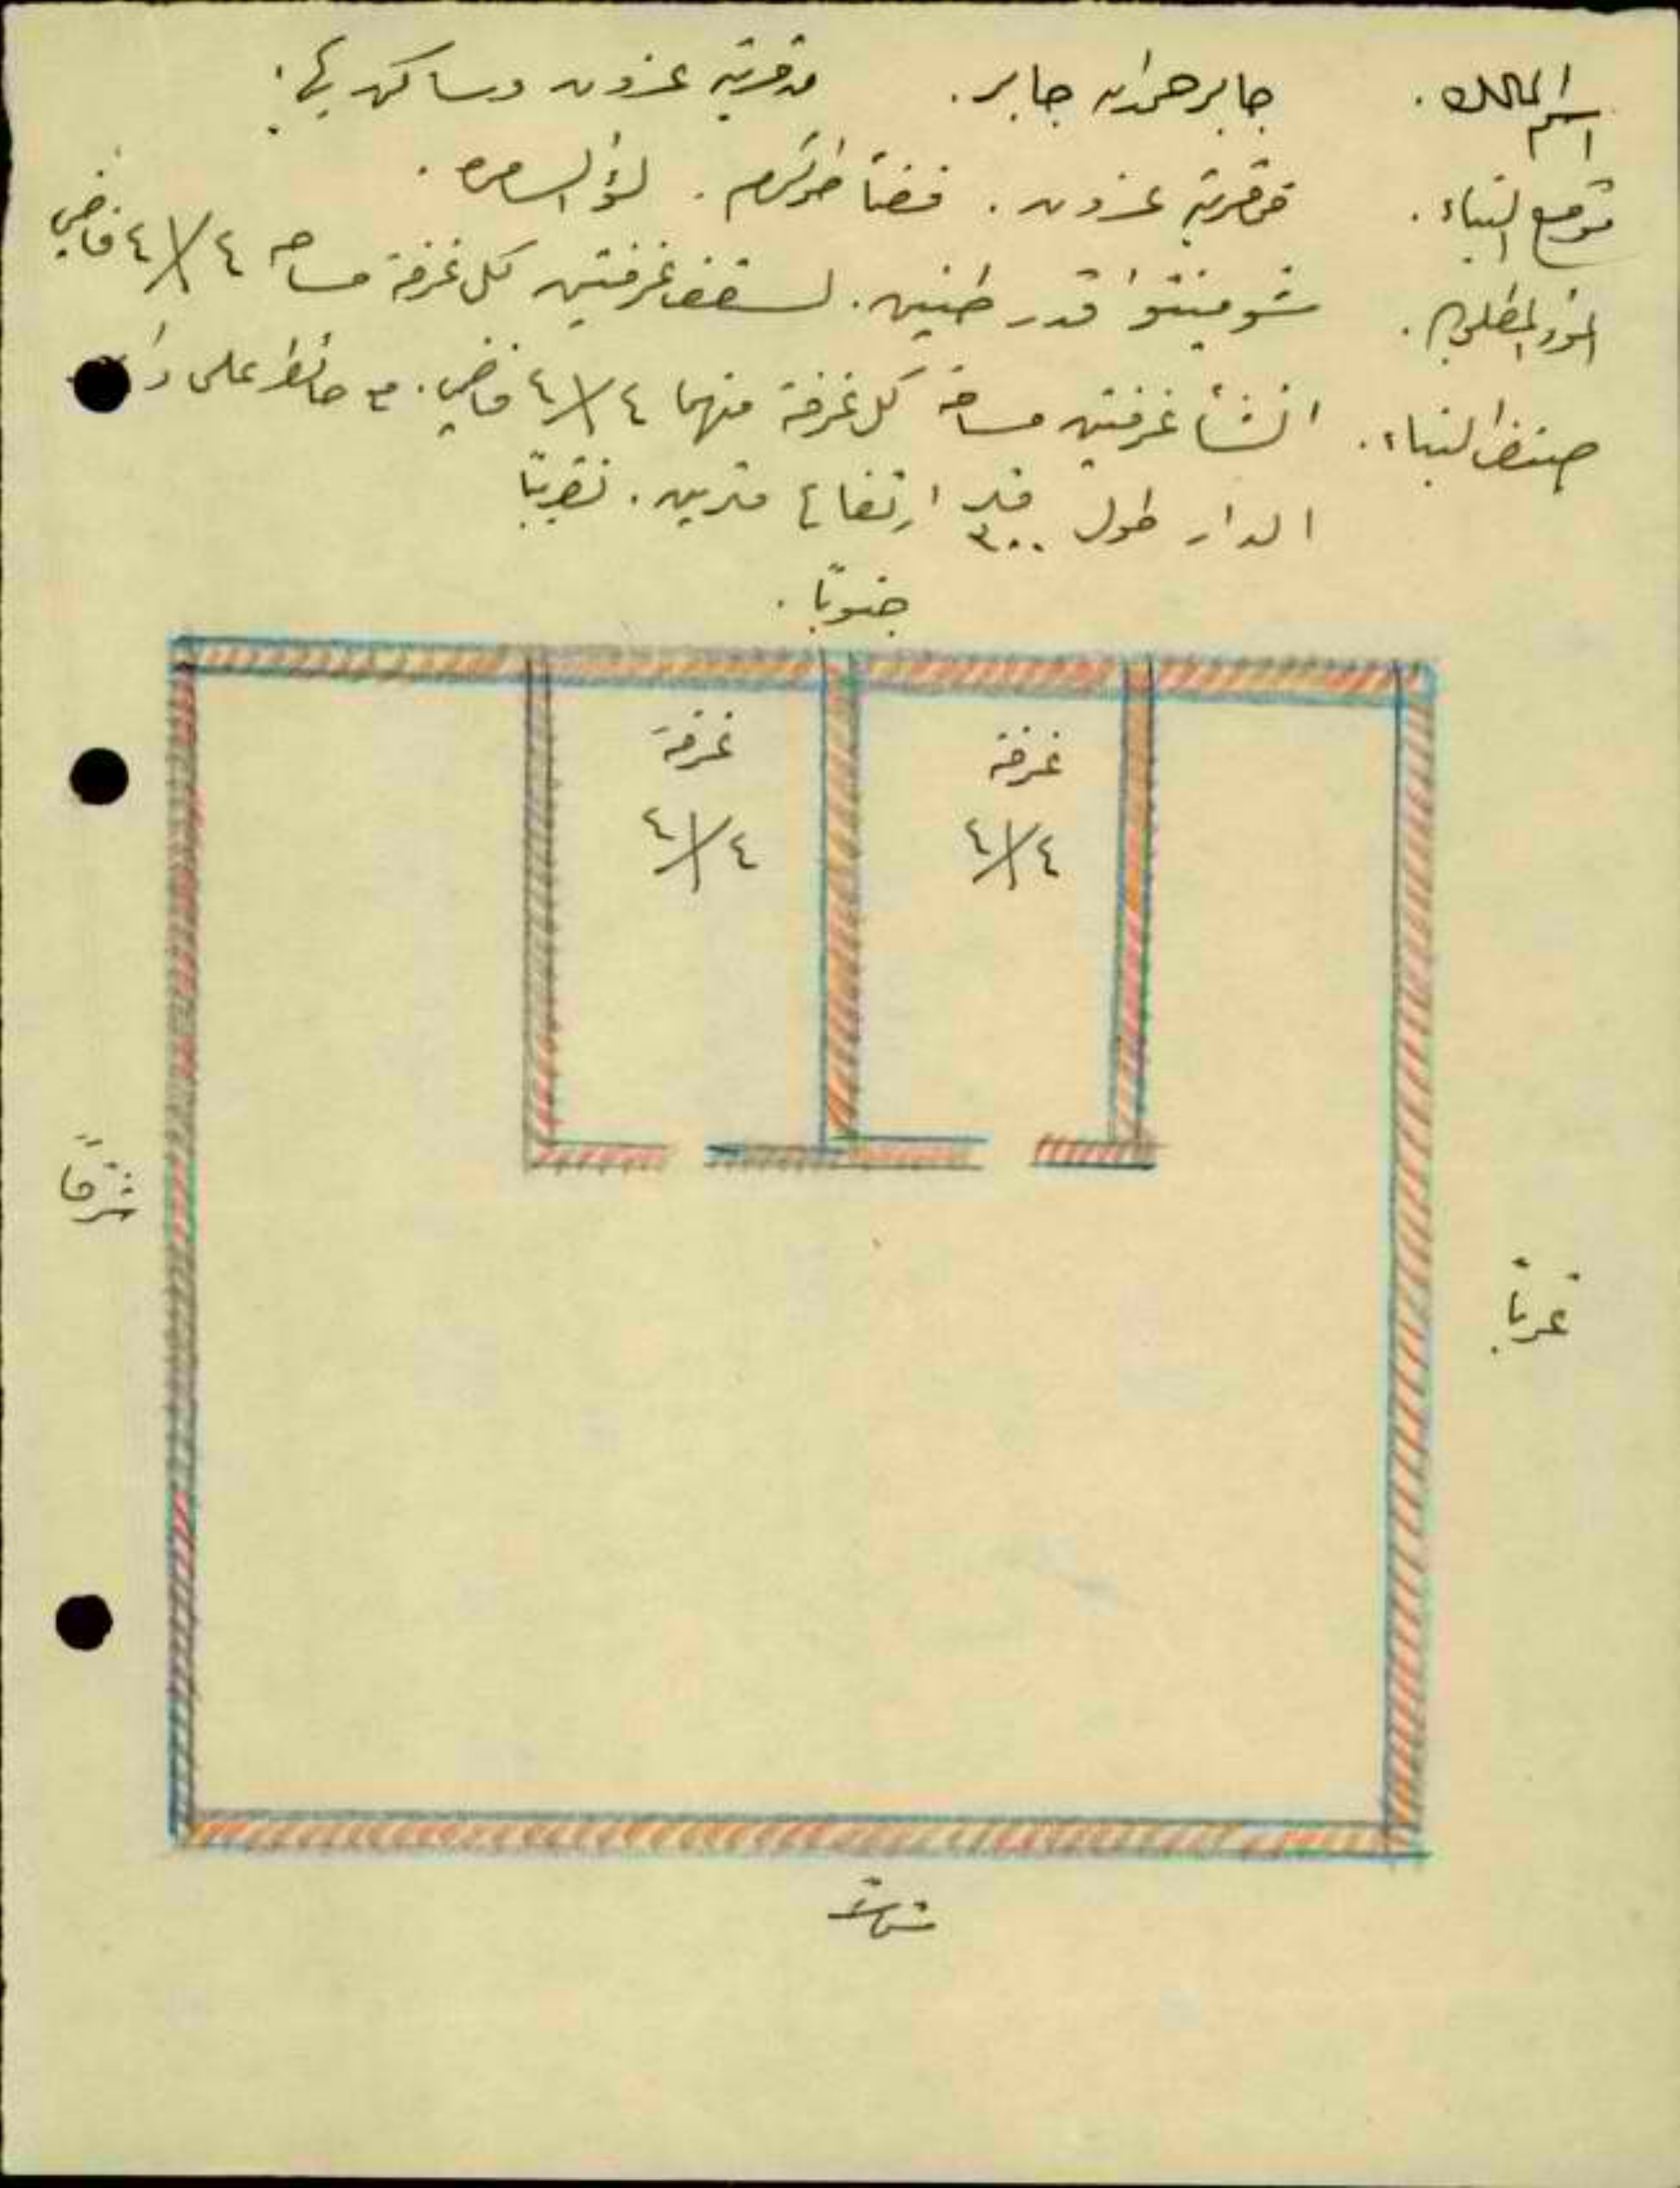 اسم المالك. جابر حمدان جابر. من قرية عزون وساكن بها.
موقع البناء. في قرية عزون. قضا طولكرم. لؤ السامره.
المواد المطلوبه. شومينتو قدر طنين. لسقف غرفتين كل غرفة مساحه ٤/٤ فاضي
صنف البناء. انشأ غرفتين مساحة كل غرفة منهما ٤/٤ فاضي. مع حائط على
الدار طول ٣٠٠ متر ارتفاع مترين. تقريبًا
جنوبًا.
غرفة
٤/٤
غرفة
٤/٤
شرقًا
غربًا
شمالًا